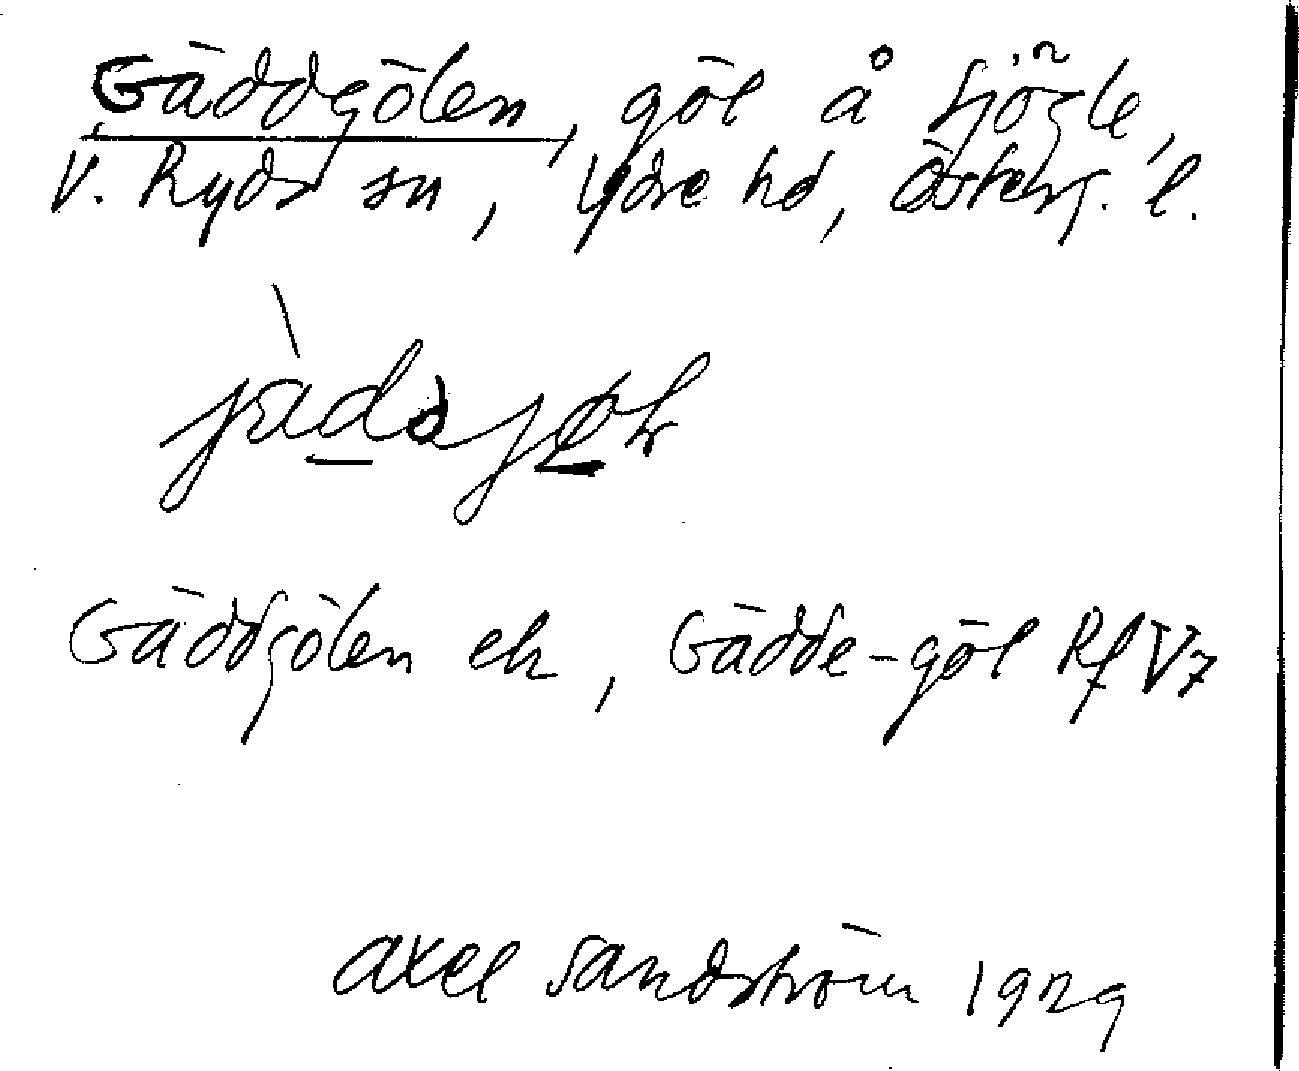 Gäddgölen, göl å Sjögle,
V. Ryds sn, Ydre hd, Österg. l.
Gäddgölen ek, Gädde-göl Rf V7
Axel Sandström 1929